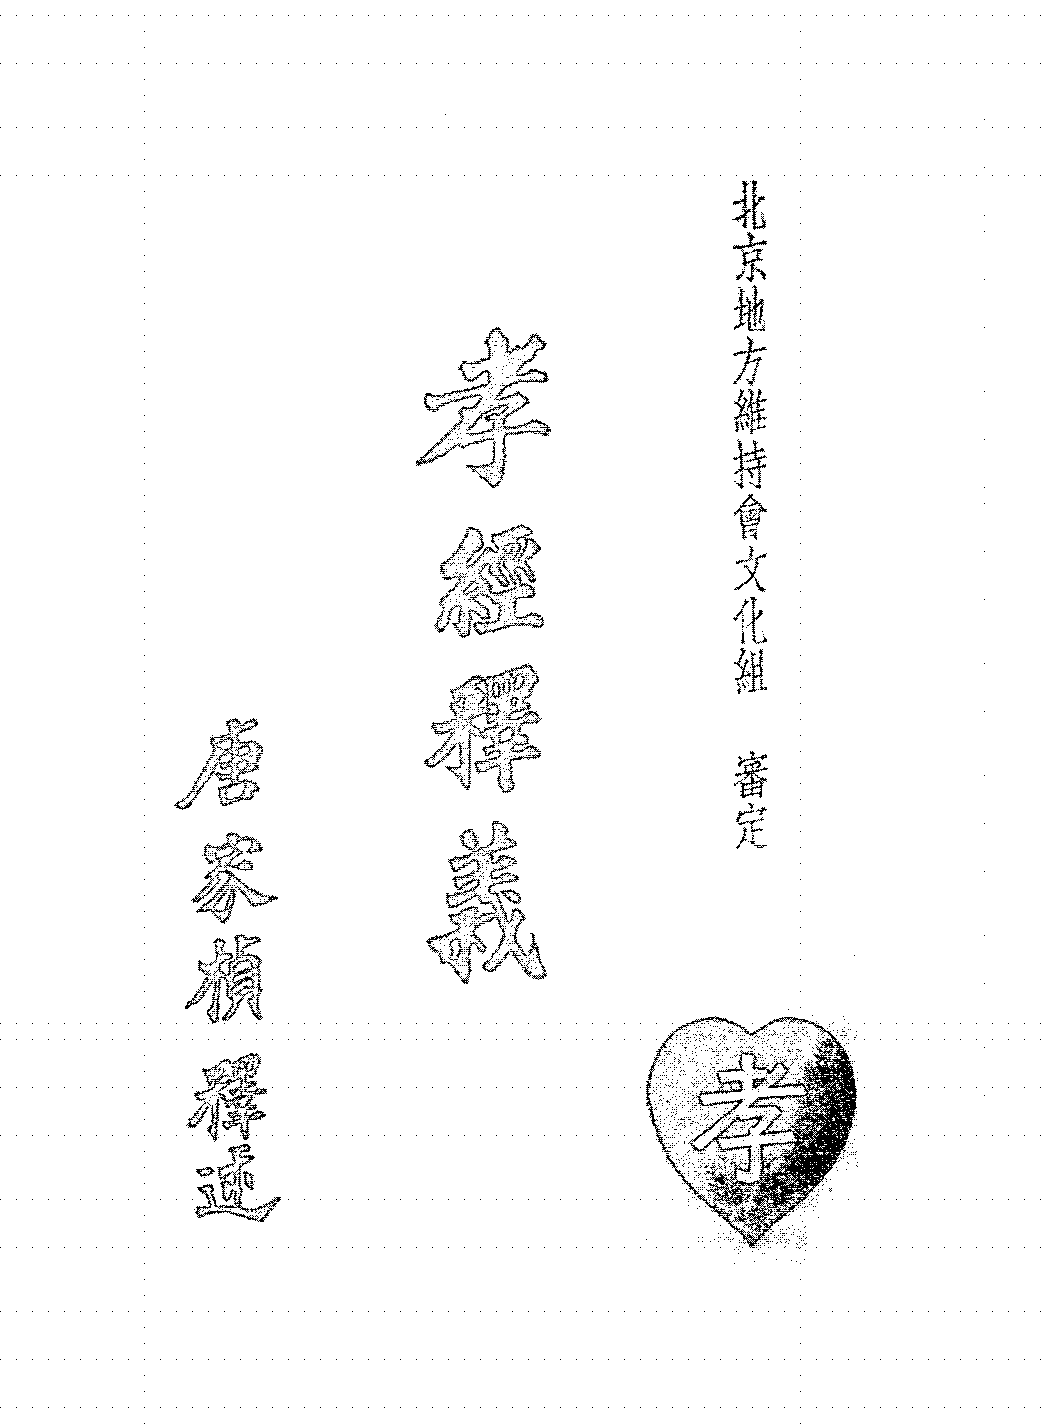 北京地方維持會文化組 審定
孝
孝經釋義
唐家楨釋述